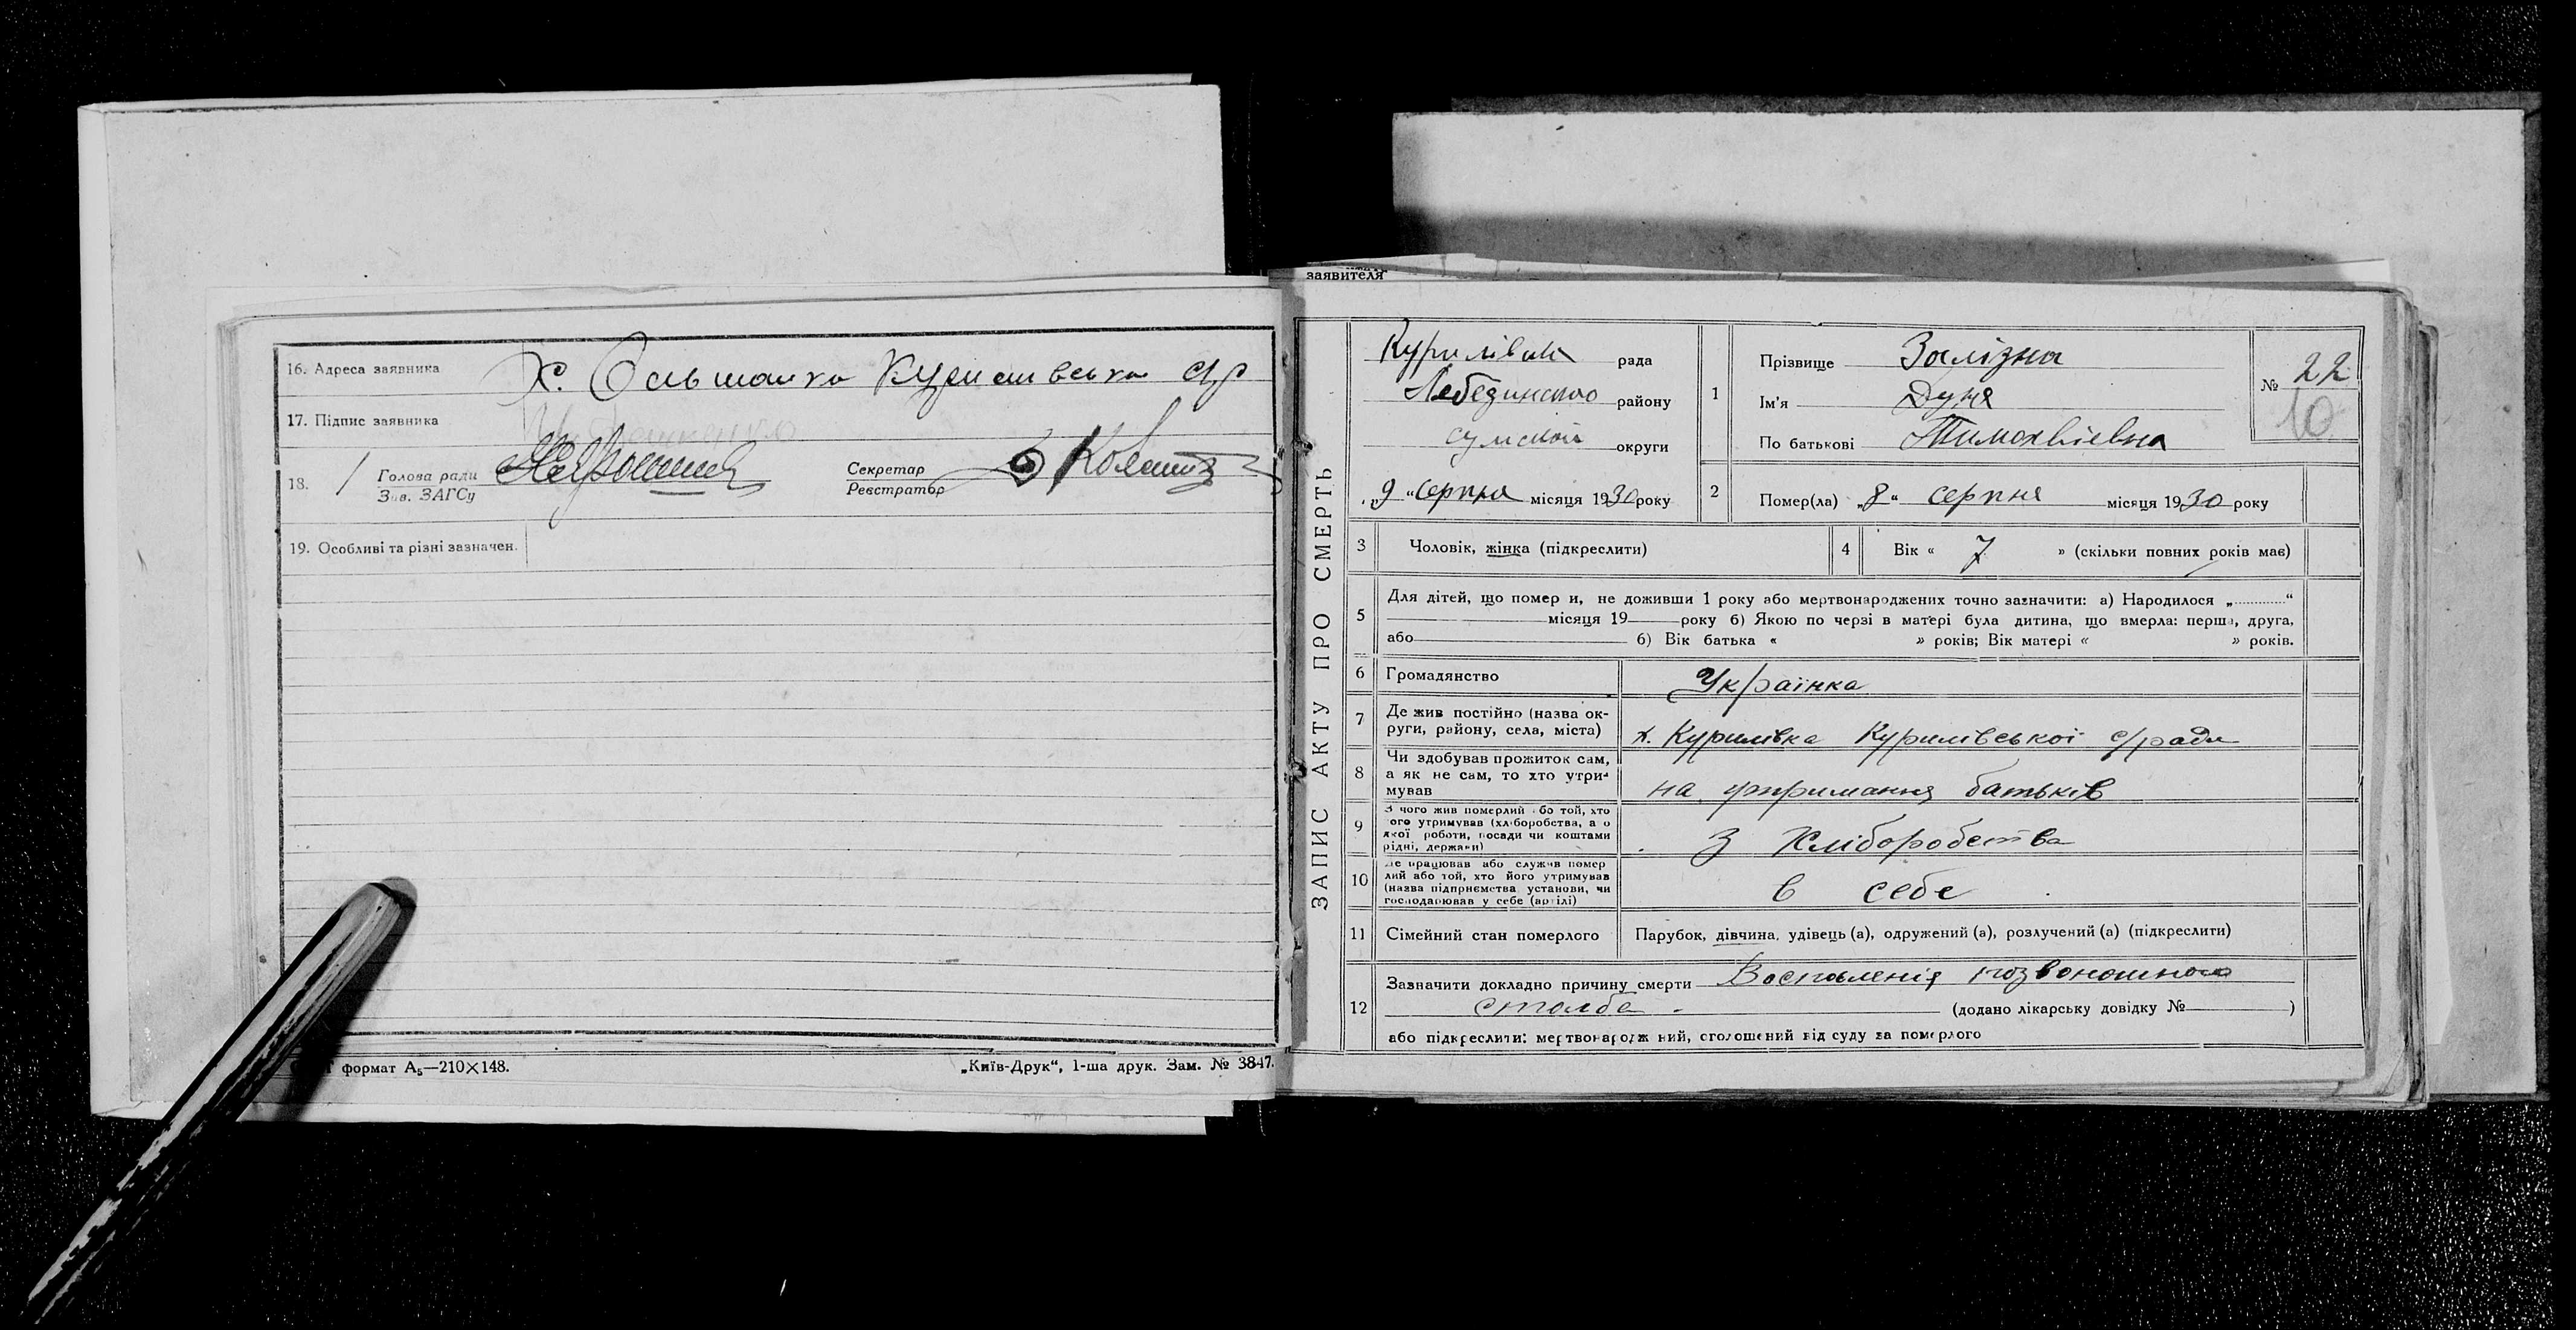 16. Адреса заявника Х. Ольшанка Курилівська с/р
17. Підпис заявника
18. Голова ради
Зав. ЗАГСу
Секретар
Реєстратор
19. Особливі та різні зазначен.
формат А5—210×148.
„Київ-Друк“, 1-ша друк. Зам. № 3847.
заявителя
ЗАПИС АКТУ ПРО СМЕРТЬ
рада
Лебединсько району
сумской округи
„9“ серпня місяця 1930 року
1
Прізвище Залізна
Ім'я Дуня
По батькові Тимохвіевна
№ 22
10
2 Помер(ла) „8“ серпня місяця 1930 року
3 Чоловік, жінка (підкреслити)
4 Вік « 7 » (скільки повних років має)
5 Для дітей, що помер и, не доживши 1 року або мертвонароджених точно зазначити: а) Народилося „............“
місяця 19 року б) Якою по черзі в матері була дитина, що вмерла: перша, друга,
або б) Вік батька « » років; Вік матері « » років.
6 Громадянство Українка
7 Де жив постійно (назва ок-
руги, району, села, міста) х. Курилівка Курилівської с/ради
8 Чи здобував прожиток сам,
а як не сам, то хто утри-
мував на утримання батьків
9 З чого жив померлий або той, хто
його утримував (хліборобства, або
якої роботи, посади чи коштами
рідні, держави) З Хліборобства
10 Де працював або служив помер
лий або той, хто його утримував
(назва підприємства, установи, чи
господарював у себе (артілі) в себе
11 Сімейний стан померлого Парубок, дівчина, удівець (а), одружений (а), розлучений (а) (підкреслити)
12 Зазначити докладно причину смерти Воспаленія позвоношного
столба. (додано лікарську довідку № )
або підкреслити: мертвонародж ний, оголошений від суду за померлого